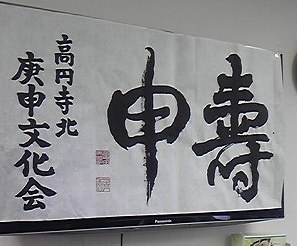 壽申
高円寺北
庚申文化会
Panasonic